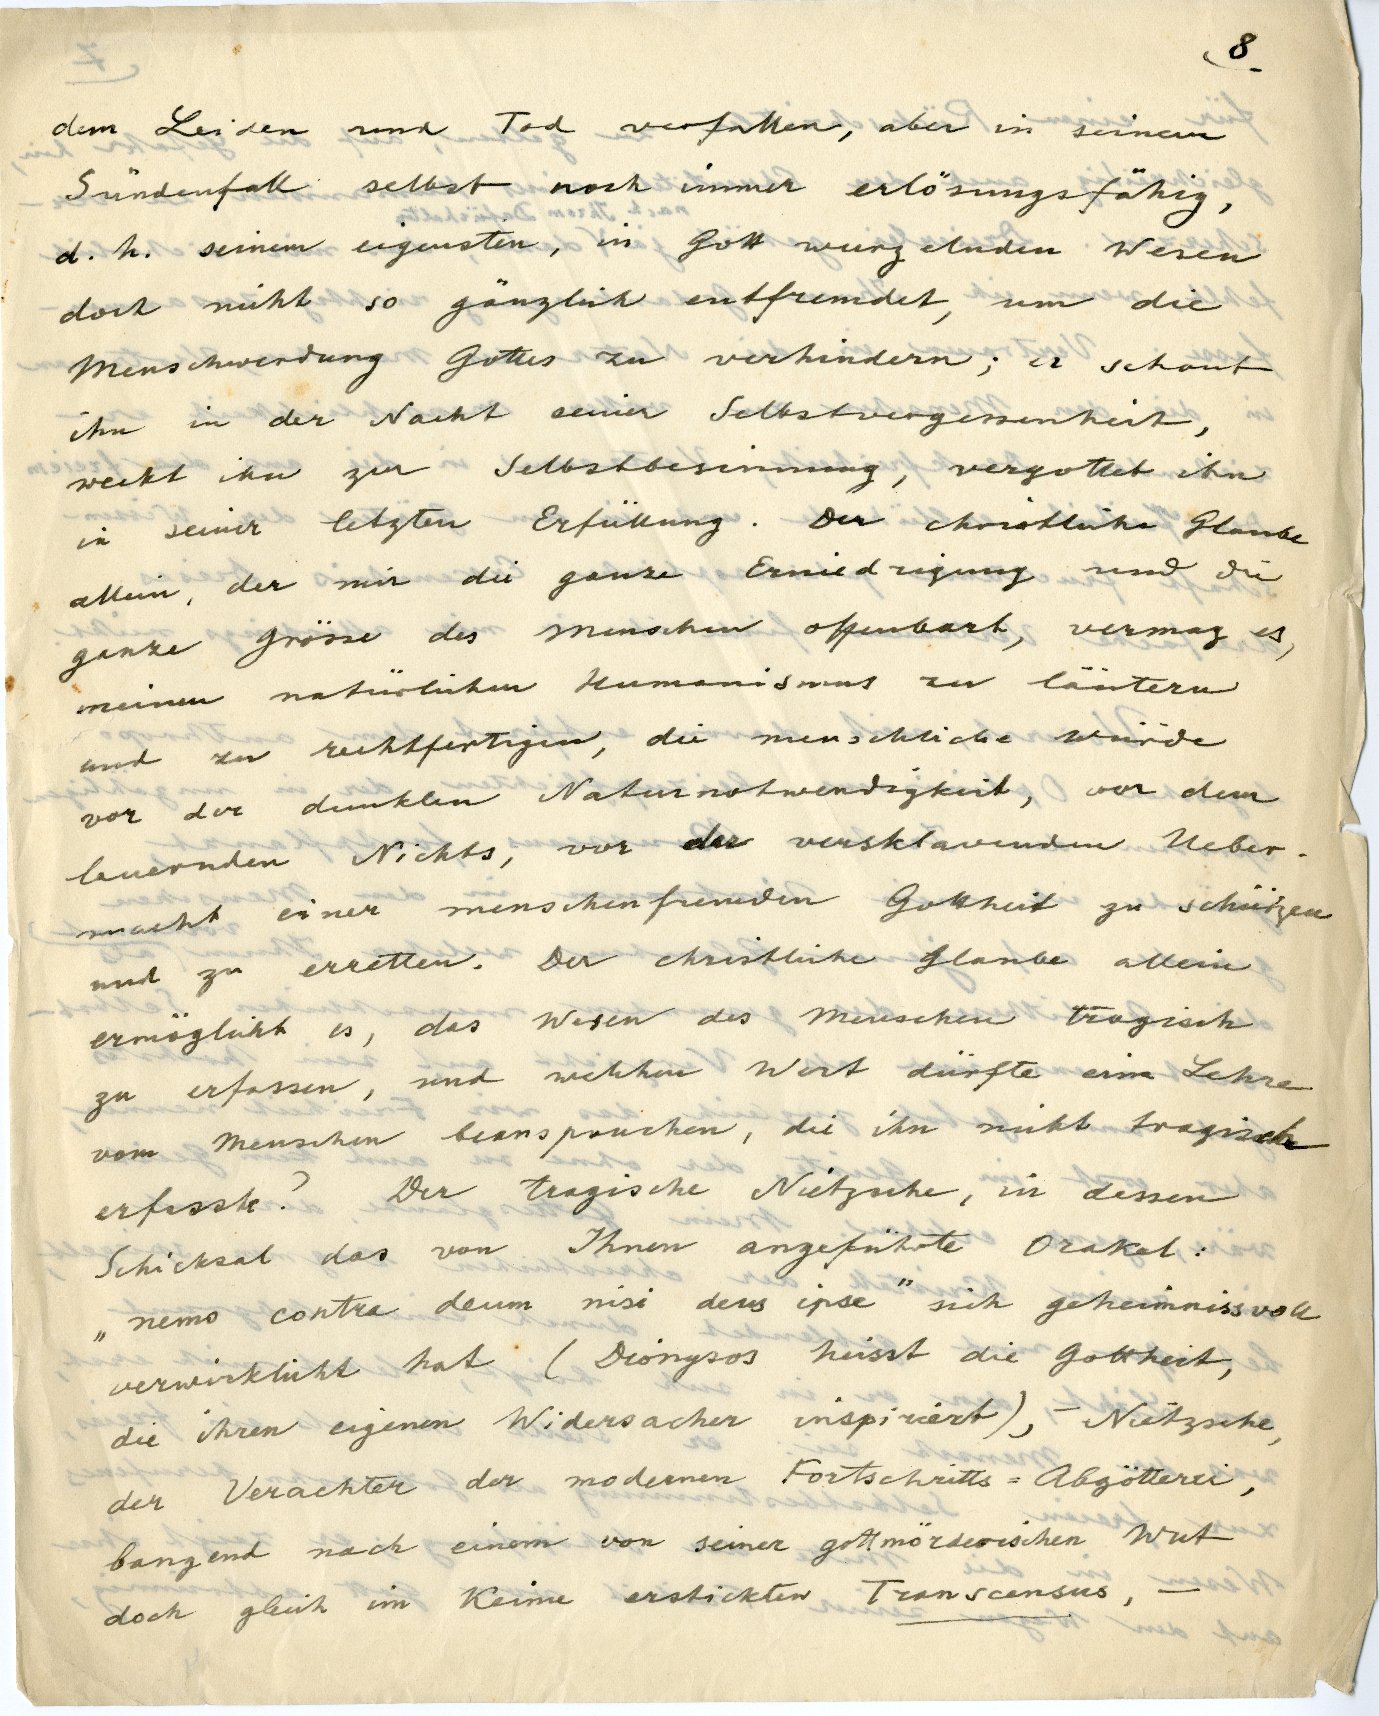 8
dem Leiden und Tod verfallen, aber in seinem
Sündenfall selbst noch immer erlösungsfähig,
d. h. seinem eigensten, in Gott wurzelnden Wesen
doch nicht so gänzlich entfremdet, um die
Menschwerdung Gottes zu verhindern; er schaut
ihn in der Nacht seiner Selbstvergessenheit,
weckt ihn zur Selbstbesinnung, vergottet ihn
in seiner letzten Erfüllung. Der christliche Glaube
allein, der mir die ganze Erniedrigung und die
ganze Grösse des Menschen offenbart, vermag es,
meinen natürlichen Humanismus zu läutern
und zu rechtfertigen, die menschliche Würde
vor der dunklen Naturnotwendigkeit, vor dem
lauernden Nichts, vor der versklavenden Ueber-
macht einer menschenfremden Gottheit zu schützen
und zu erretten. Der christliche Glaube allein
ermöglicht es, das Wesen des Menschen tragisch
zu erfassen, und welchen Wert dürfte eine Lehre
vom Menschen beanspruchen, die ihn nicht tragisch
erfasste? Der tragische Nietzsche, in dessen
Schicksal das von Ihnen angeführte Orakel:
„nemo contra deum nisi deus ipse" sich geheimnissvoll
verwirklicht hat (Dionysos heisst die Gottheit,
die ihren eigenen Widersacher inspiriert), – Nietzsche,
der Verächter der modernen Fortschritts=Abgötterei,
bangend nach einem von seiner gottmörderischen Wut
doch gleich im Keime erstickten Transcensus, —